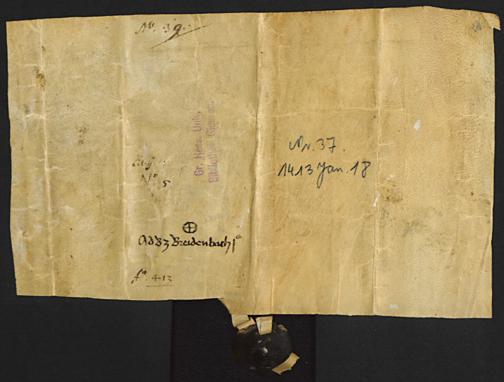 No. 39.
Gr. Hess. Univ.
Bibliothek Giessen.
No 5
Nr. 37.
1413 Jan. 18
Breidenbach
fo 413